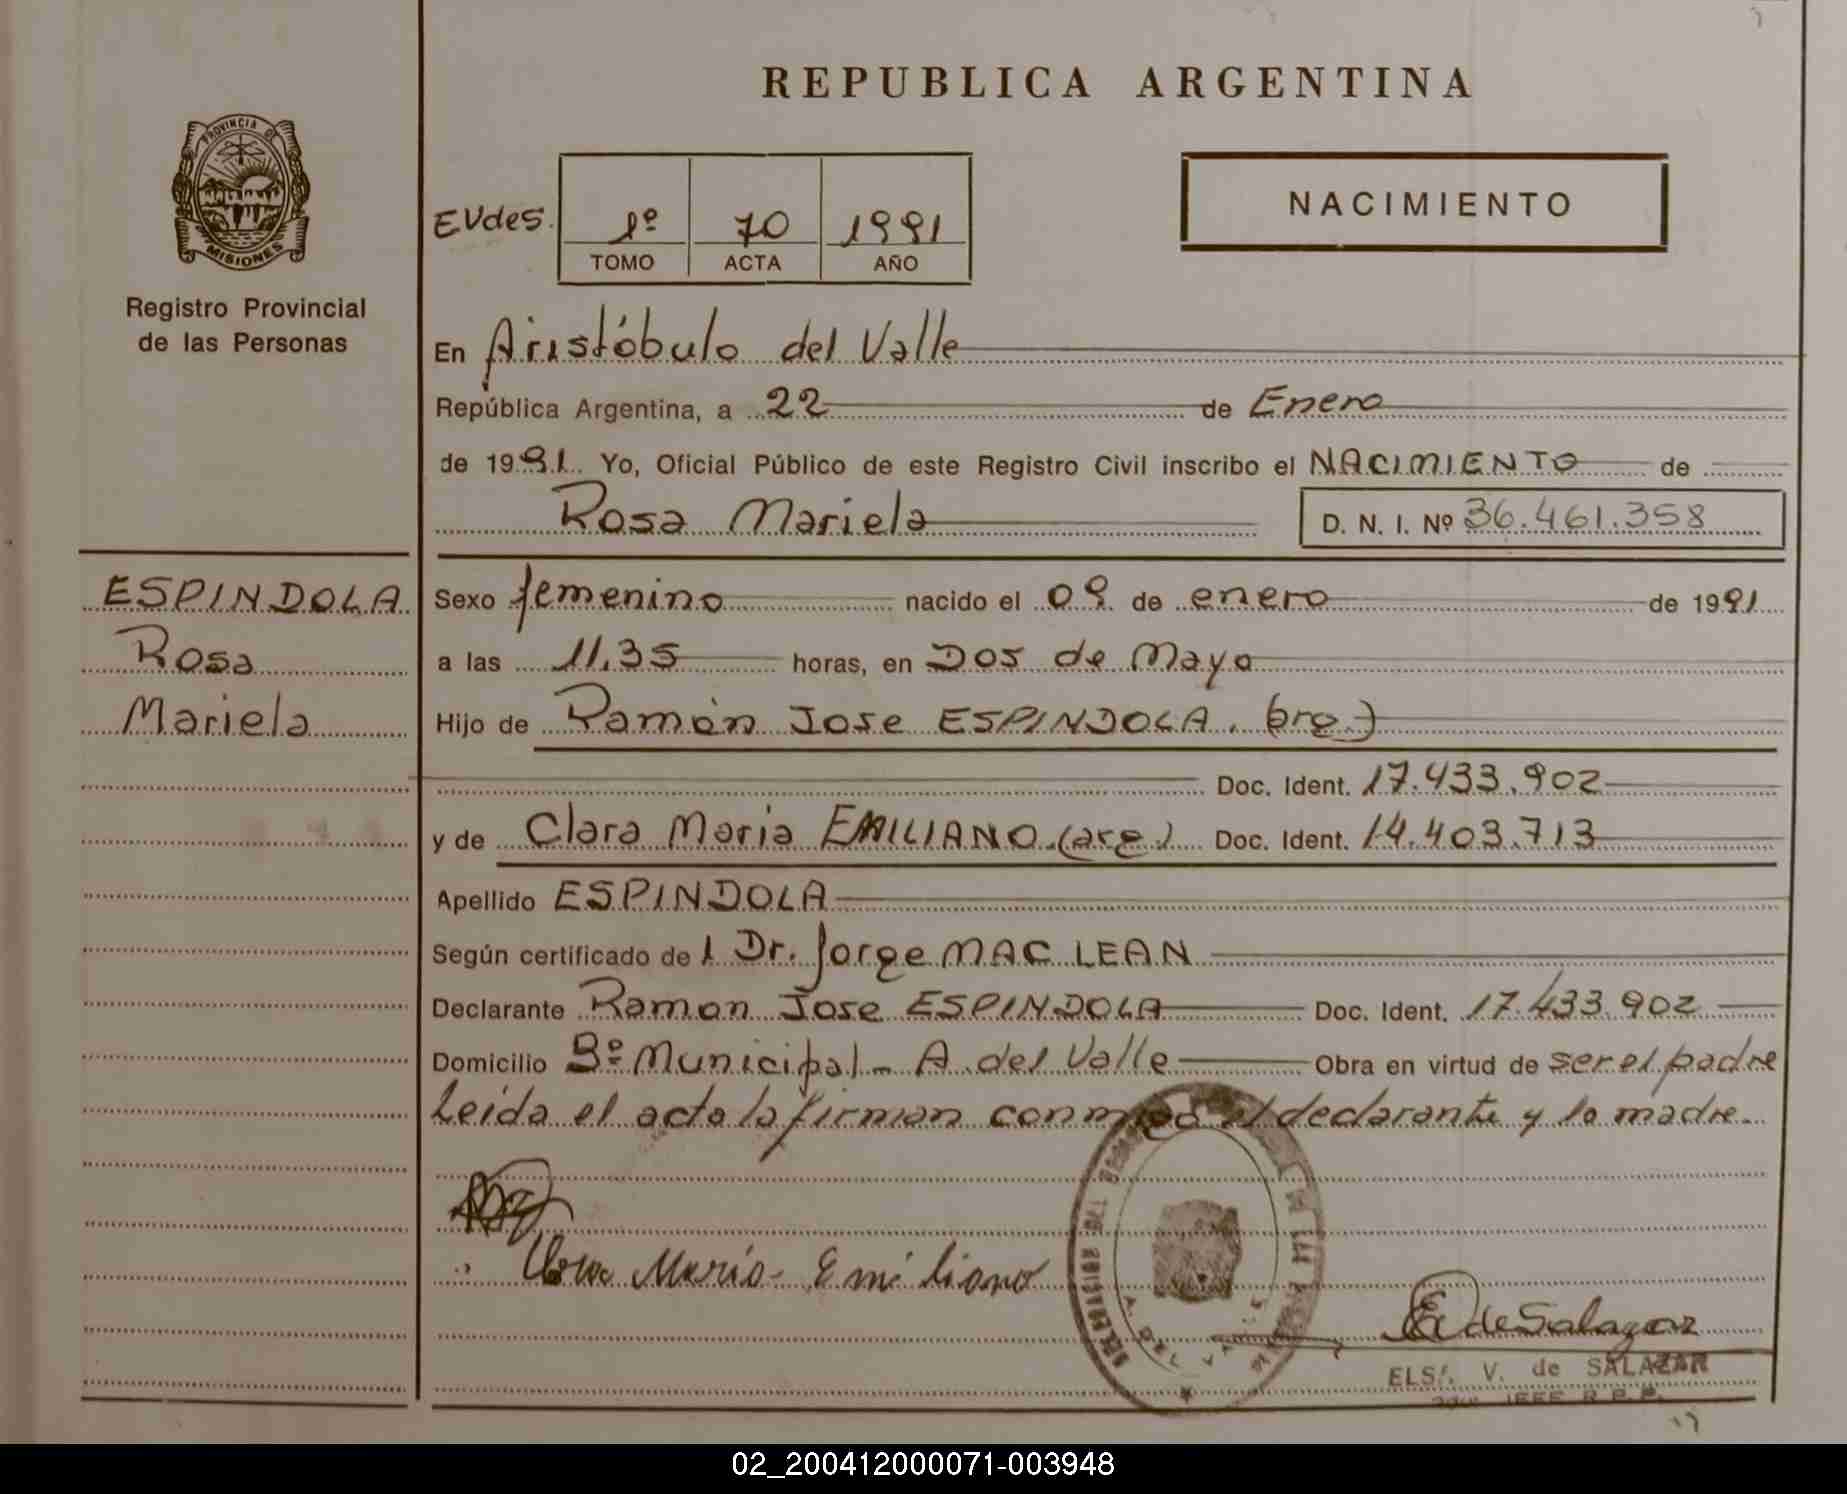 REPUBLICA ARGENTINA
PROVINCIA DE
MISIONES
Registro Provincial
de las Personas
EVdes. 1º 70 1991
TOMO ACTA AÑO
NACIMIENTO
En Aristóbulo del Valle
República Argentina, a 22 de Enero
de 1991. Yo, Oficial Público de este Registro Civil inscribo el NACIMIENTO de
Rosa Mariela D. N. I. Nº 36.461.358
ESPINDOLA
Rosa
Mariela
Sexo femenino nacido el 09 de enero de 1991
a las 11.35 horas, en Dos de Mayo
Hijo de Ramón Jose ESPINDOLA. (arg.)
Doc. Ident. 17.433.902
y de Clara Maria EMILIANO.(arg.) Doc. Ident. 14.403.713
Apellido ESPINDOLA
Según certificado de l Dr. Jorge MAC LEAN
Declarante Ramon Jose ESPINDOLA Doc. Ident. 17.433.902
Domicilio Bº Municipal - A del Valle Obra en virtud de ser el padre
Leída el acta la firman conmigo el declarante y la madre.
Maria Emiliano
A. DEL VALLE
EV de Salazar
ELSA V. de SALAZAR
JEFE R.P.P.
02_200412000071-003948